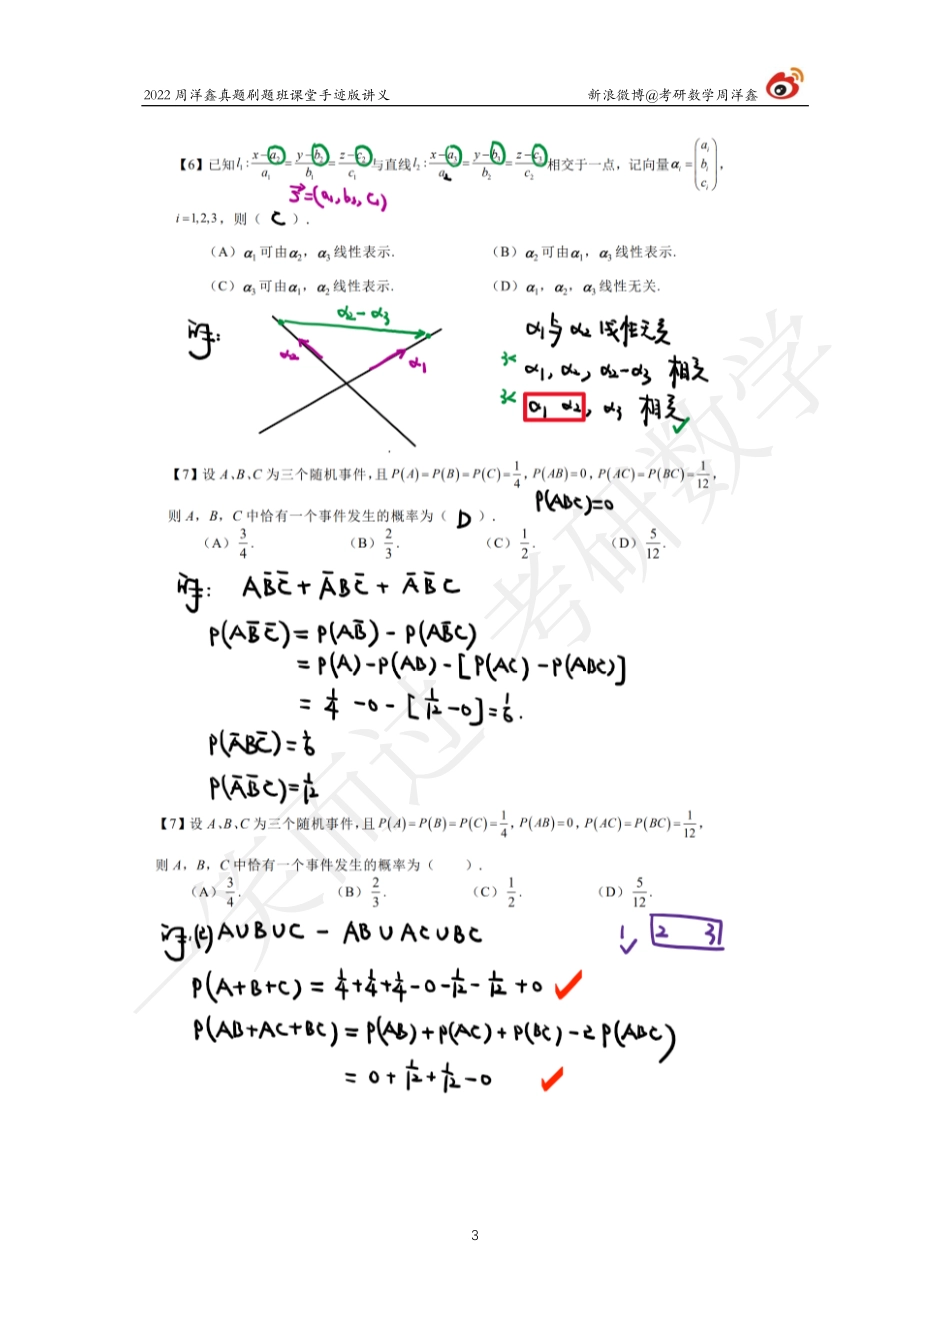 2022 周洋鑫真题刷题班课堂手迹版讲义 新浪微博@考研数学周洋鑫
【6】已知 l₁: (x−a₂)/a₁ = (y−b₂)/b₁ = (z−c₂)/c₁ 与直线 l₂: (x−a₃)/a₂ = (y−b₃)/b₂ = (z−c₃)/c₂ 相交于一点，记向量 αᵢ = (aᵢ bᵢ cᵢ)，
i=1,2,3，则（ C ）.
（A）α₁ 可由α₂，α₃ 线性表示. （B）α₂ 可由α₁，α₃ 线性表示.
（C）α₃ 可由α₁，α₂ 线性表示. （D）α₁，α₂，α₃ 线性无关.
解: α₂−α₃ α₂ α₁
α₁与α₂ 线性无关
α₁, α₂, α₂−α₃ 相关
α₁ α₂, α₃ 相关
【7】设 A、B、C 为三个随机事件，且 P(A)=P(B)=P(C)=1/4，P(AB)=0，P(AC)=P(BC)=1/12，
P(ABC)=0
则 A，B，C 中恰有一个事件发生的概率为（ D ）.
（A）3/4. （B）2/3. （C）1/2. （D）5/12.
解: AB̄C̄ + ĀBC̄ + ĀB̄C
P(AB̄C̄) = P(AB̄) − P(AB̄C)
= P(A)−P(AB) − [P(AC) − P(ABC)]
= 1/4 −0 − [1/12 −0] = 1/6.
P(ĀBC̄) = 1/6
P(ĀB̄C) = 1/12
【7】设 A、B、C 为三个随机事件，且 P(A)=P(B)=P(C)=1/4，P(AB)=0，P(AC)=P(BC)=1/12，
则 A，B，C 中恰有一个事件发生的概率为（ ）.
（A）3/4. （B）2/3. （C）1/2. （D）5/12.
解:(2) A∪B∪C − AB∪AC∪BC 1 2 3
P(A+B+C) = 1/4+1/4+1/4−0−1/12−1/12+0
P(AB+AC+BC) = P(AB)+P(AC)+P(BC)−2P(ABC)
= 0+1/12+1/12−0
一笑而过 考研数学
3